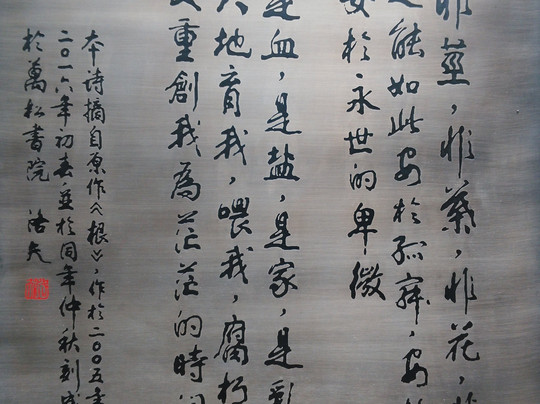 非莖，非葉，非花，
能如此安於孤寂，安
安於永世的卑微
是血，是鹽，是家，是
大地育我，喂我，腐朽
重創我為茫茫的時
本詩摘自原作《根》，作於二〇〇五
二〇一六年初春，並於同年仲秋刻
於萬松書院 洛夫